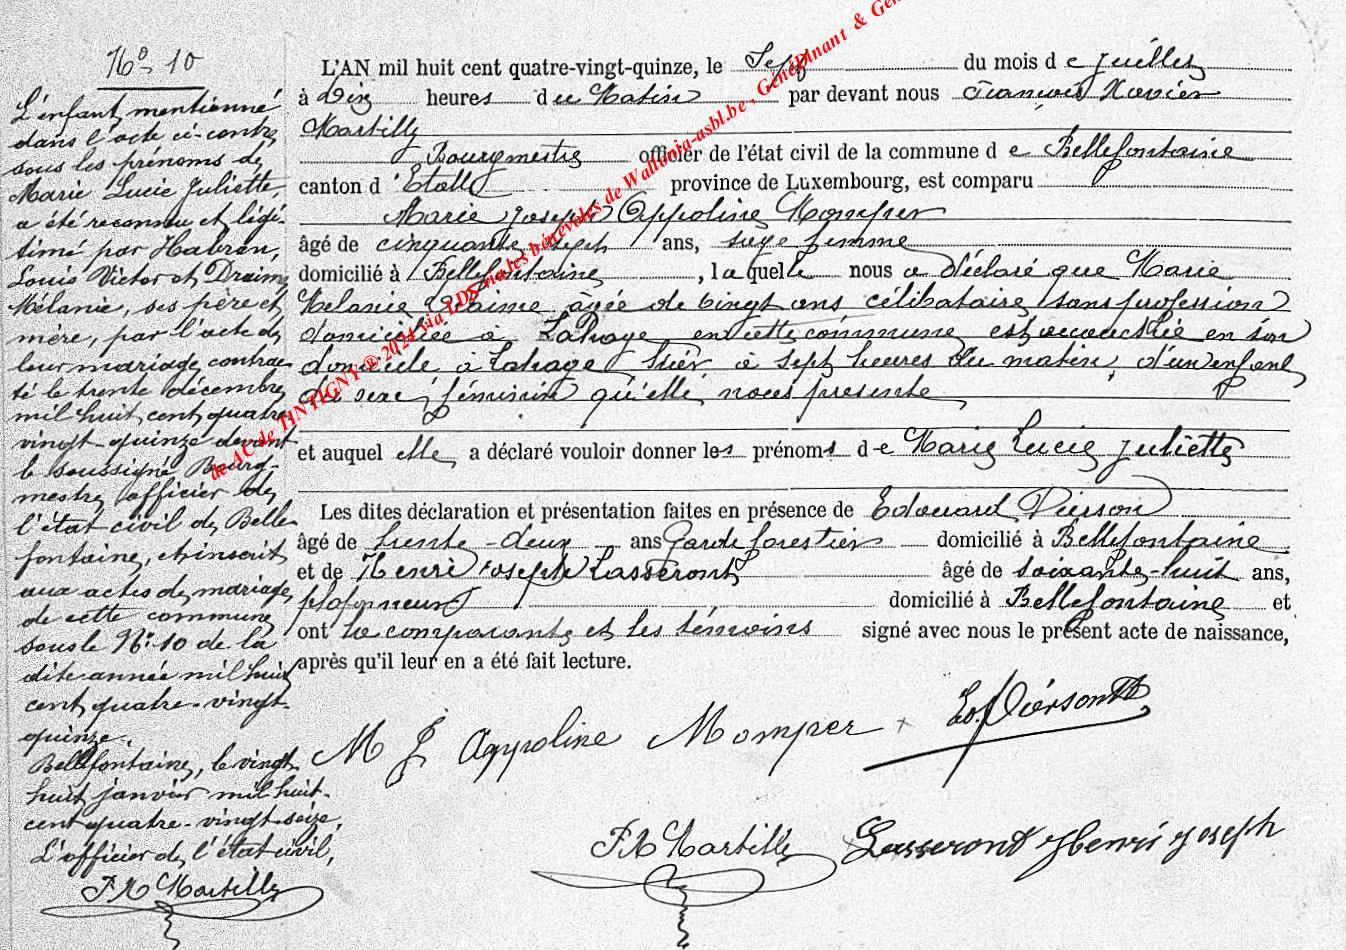 No 10
L'enfant mentionné
dans l'acte ci-contre
sous les prénoms de
Marie Lucie Juliette,
a été reconnu et légi-
timé par Habran,
Louis Victor et Draime
Mélanie, ses père et
mère, par l'acte de
leur mariage contrac-
té le trente décembre
mil huit cent quatre
vingt-quinze devant
le soussigné Bourg-
mestre officier de
l'état civil de Belle-
fontaine, et inscrit
aux actes de mariage
de cette commune
sous le No 10 de la
dite année mil huit
cent quatre-vingt-
quinze.
Bellefontaine, le vingt
huit janvier mil huit-
cent quatre-vingt-seize.
L'officier de l'état civil,
F X Martilly
L'AN mil huit cent quatre-vingt-quinze, le Sept du mois de Juillet
à Dix heures du Matin par devant nous François Xavier
Martilly
Bourgmestre officier de l'état civil de la commune de Bellefontaine
canton d'Etalle province de Luxembourg, est comparu
Marie Joseph Appoline Momper
âgé de cinquante sept ans, sage femme
domicilié à Bellefontaine, laquelle nous a déclaré que Marie
Melanie Draime âgée de vingt ans célibataire sans profession
domiciliée à Lahage en cette commune est accouchée en son
domicile à Lahage hier à sept heures du matin, d'un enfant
du sexe féminin qu'elle nous presente
et auquel elle a déclaré vouloir donner les prénoms de Marie Lucie Juliette
Les dites déclaration et présentation faites en présence de Edouard Pierson
âgé de trente-deux ans Garde forestier domicilié à Bellefontaine
et de Henri Joseph Lasseront âgé de soixante-huit ans,
plafonneur domicilié à Bellefontaine et
ont la comparante et les témoins signé avec nous le présent acte de naissance,
après qu'il leur en a été fait lecture.
M J Appoline Momper
Ed. Pierson
F X Martilly
Lasseront Henri Joseph
de AC de TINTIGNY ® 2024 via LDS via les bénévoles de Wallonia-asbl.be , GénéDinant & Gen